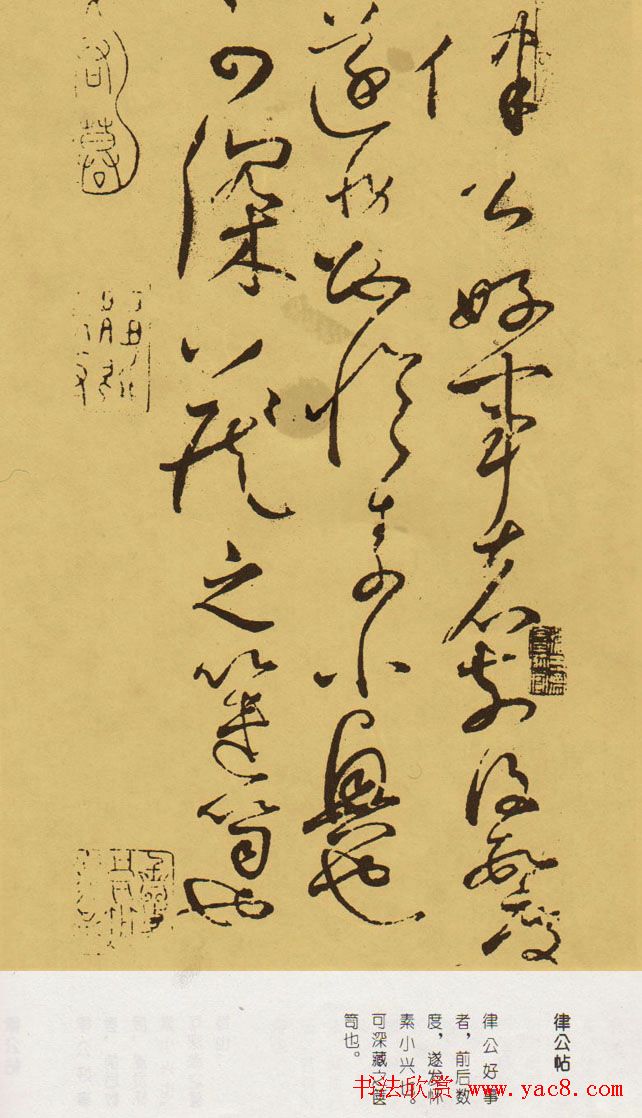 律公好事者前后数度
遂发必怀素小兴也
可深藏之箧笥也
律公帖
律公好事
者，前后数
度，遂发怀
素小兴也。
可深藏之箧
笥也。
书法欣赏 www.yac8.com